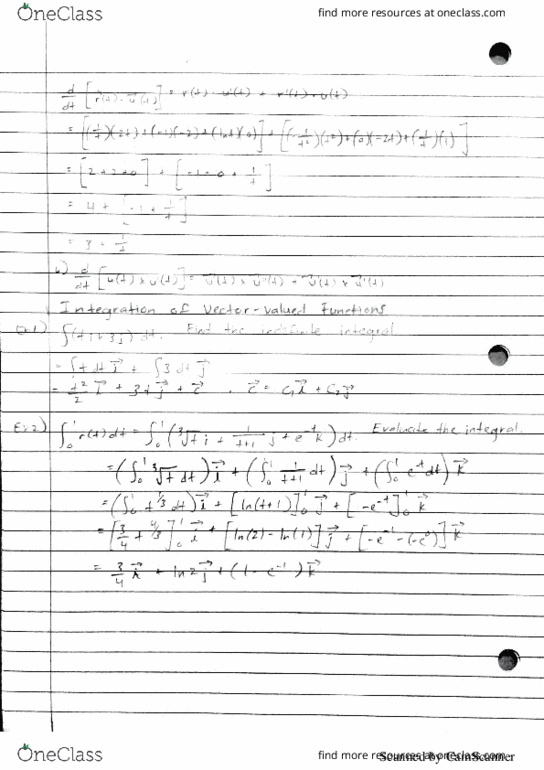 OneClass find more resources at oneclass.com
d/dt [r(t) · u(t)] = r(t) · u'(t) + r'(t) · u(t)
= [(1/t)(2t) + (-1)(-2) + (ln t)(0)] + [(-1/t²)(t²) + (0)(-2t) + (1/t)(1)]
= [2+2+0] + [-1-0+1/t]
= 4 + [-1 + 1/t]
= 3 + 1/t
b) d/dt [u(t) x u'(t)] =
Integration of Vector-Valued Functions
Ex1) ∫(t i + 3 j) dt. Find the indefinite integral
= ∫t dt i + ∫3 dt j
= t²/2 i + 3t j + c . c = C₁i + C₂j
Ex2) ∫₀¹ r(t) dt = ∫₀¹ (∛t i + 1/(t+1) j + e^-t k) dt. Evaluate the integral.
= (∫₀¹ ∛t dt) i + (∫₀¹ 1/(t+1) dt) j + (∫₀¹ e^-t dt) k
= (∫₀¹ t^1/3 dt) i + [ln(t+1)]₀¹ j + [-e^-t]₀¹ k
= [3/4 t^4/3]₀¹ i + [ln(2) - ln(1)] j + [-e^-1 - (-e^0)] k
= 3/4 i + ln 2 j + (1 - e^-1) k
OneClass find more resources at oneclass.com
Scanned by CamScanner